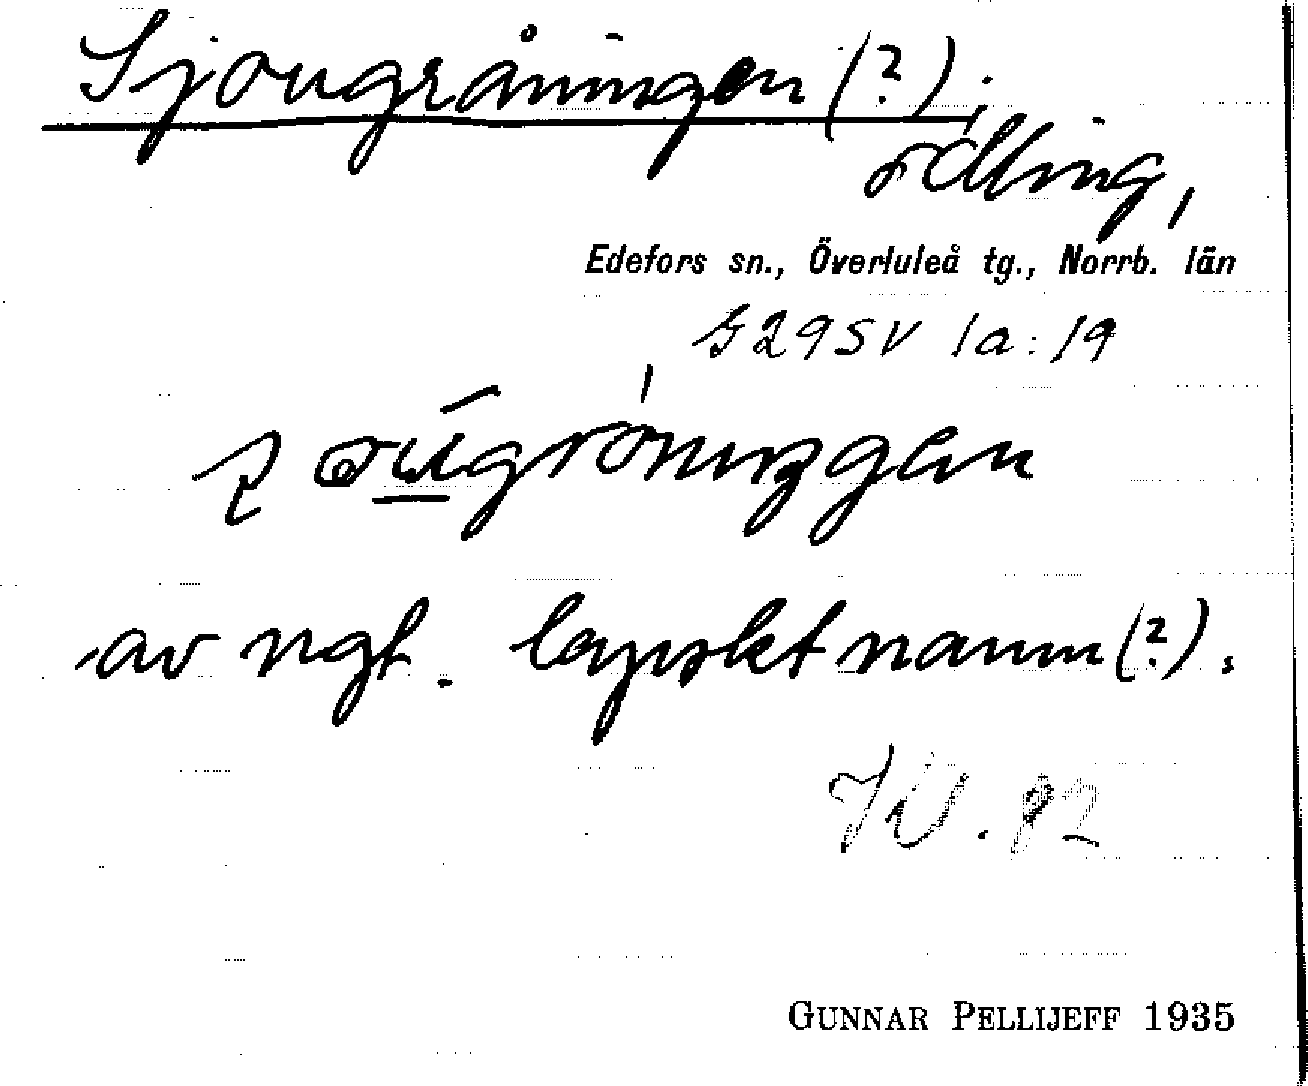 Sjougråningen (?);
ödling,
Edefors sn., Överluleå tg., Norrb. län
G29SV 1a:19
av ngt. lapskt namn (?).
GUNNAR PELLIJEFF 1935